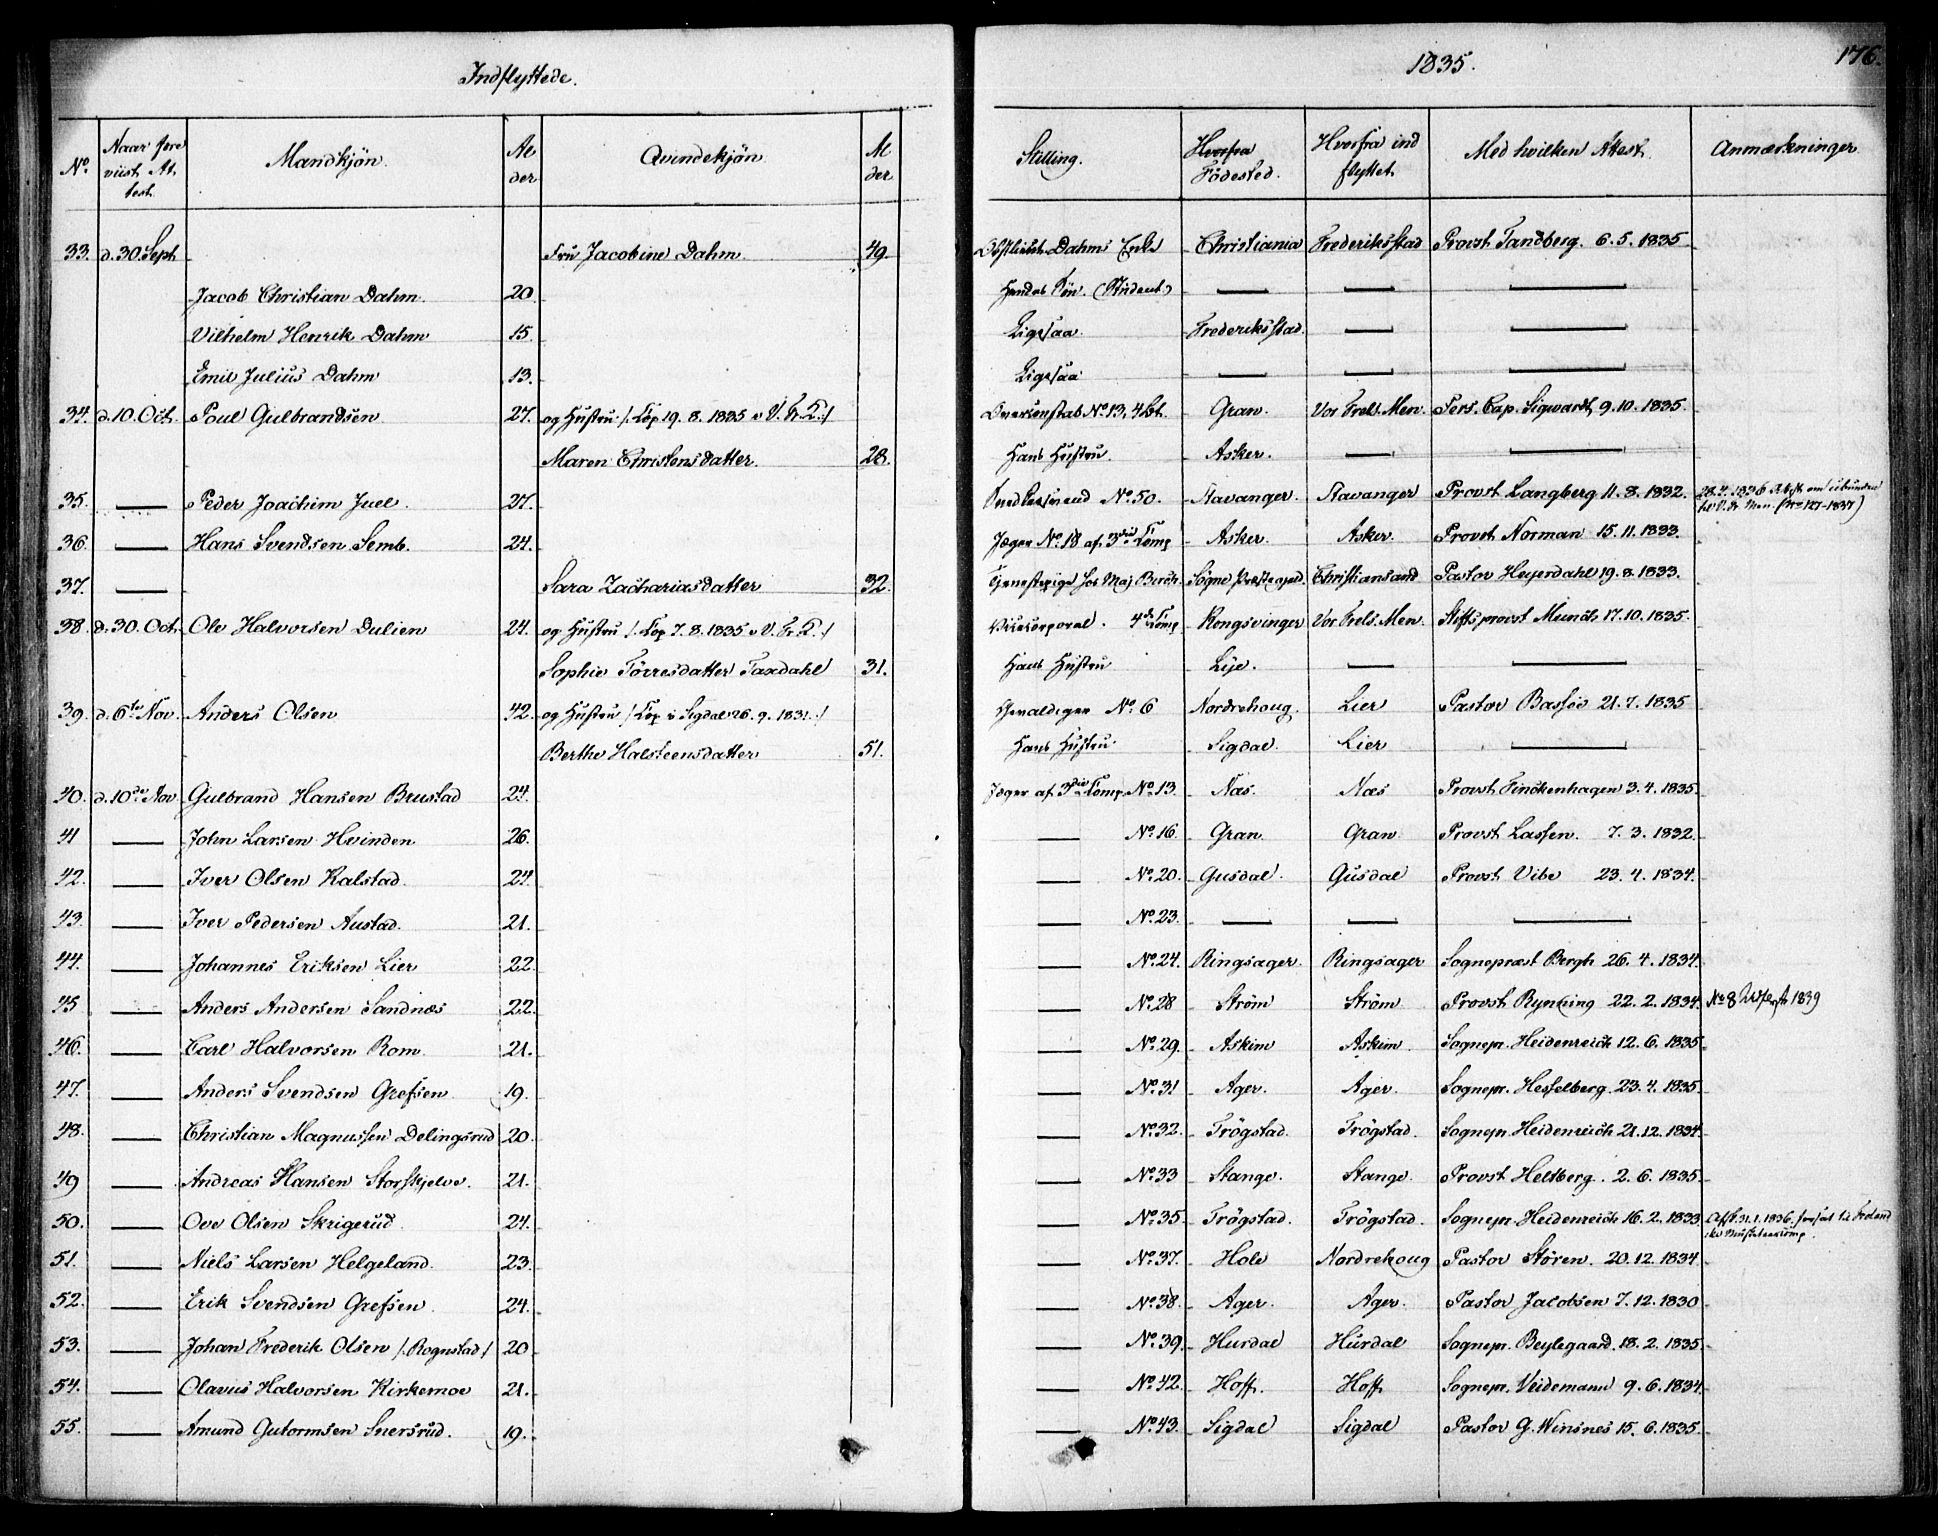 Indflyttede.
1835.
176.
No. Naar fore viist At test. Mandkjön. Al der Qvindekjön Al der Stilling. Hvorfra Födested. Hvorfra ind flyttet Med hvilken Attest. Anmærkninger
33. d. 30 Sept Fru Jacobine Dahm 49. Dahms Enke Christiania Frederiksstad Provst Tandberg. 6. 5. 1835
Jacob Christian Dahm. 20 Hendes Sön. (Student) — — —
Vilhelm Henrik Dahm 15. Ligesaa Frederiksstad. — —
Emil Julius Dahm 13. Ligesaa — — —
34. d. 10. Oct. Poul Gulbrandsen 27. og Hustru /: Cop 19. 8. 1835 i V. Fr. K. :/ No. 13, 4 Gran. Vor Frels. Men. Pers. Cap. Sigwardt 9. 10. 1835.
Maren Christensdatter. 28. Hans Hustru. Asker. — —
35. — Peder Joachim Juel. 27. No. 50. Stavanger. Stavanger Provst Langberg 11. 8. 1832. 28. 4. 1836 Attest
36. — Hans Svendsen Semb. 24. Jæger No. 18 af 3die Comp Asker. Asker. Provst Norman 15. 11. 1833.
37. — Sara Zachariasdatter 32. Tjenestepige hos Maj. Birch. Sögne Præstegjed. Christiansand Pastor Heyerdahl 19. 8. 1833.
38 d. 30. Oct. Ole Halvorsen Dulien 24. og Hustru /: Cop 7. 8. 1835 i V. Fr. K. :/ Vicecorporal. 4de Comp Kongsvinger Vor Frels. Men. Stiftsprovst Munch 17. 10. 1835.
Sophie Törresdatter Taxdahl 31. Hans Hustru Lije. — —
39. d. 6te Nov. Anders Olsen 42. og Hustru /: Cop i Sigdal 26. 9. 1831. :/ Gevaldiger No. 6 Nordrehoug. Lier Pastor Bassöe 21. 7. 1835
Berthe Halsteensdatter 51. Hans Hustru Sigdal. Lier —
40. d. 10de Nov Gulbrand Hansen Brustad 24. Jæger af 3die Comp. No. 13. Næs. Næs Provst Finckenhagen 3. 4. 1835.
41 — John Larsen Hvinden 26. — No. 16. Gran. Gran Provst Lassen. 7. 3. 1832.
42. — Iver Olsen Kalstad. 24. — No. 20. Gusdal. Gusdal Provst Vibe 23. 4. 1834.
43. — Iver Pedersen Austad. 21. — No. 23. — — —
44. — Johannes Eriksen Lier 22. — No. 24. Ringsager. Ringsager Sognepræst Bergh 26. 4. 1834.
45 — Anders Andersen Sandnæs 22. — No. 28 Ström Ström Provst Rynning 22. 2. 1834. No 8 1839
46. — Carl Halvorsen Rom 21. — No. 29. Askim Askim. Sognepr. Heidenreich 12. 6. 1835.
47. — Anders Svendsen Grefsen 19. — No. 31 Ager. Ager. Sognepr. Hesselberg. 23. 4. 1835.
48. — Christian Magnussen Delingsrud 20. — No. 32. Trögstad. Trögstad. Sognepr. Heidenreich 21. 12. 1834.
49 — Andreas Hansen Storskjelve. 21. — No. 33 Stange. Stange. Provst Heltberg. 2. 6. 1835.
50. — Ove Olsen Skrigerud 24. — No. 35 Trögstad. Trögstad. Sognepr. Heidenreich 16. 2. 1833. 31. 1. 1836
51. — Niels Larsen Helgeland. 23. — No. 37. Hole Nordrehoug Pastor Stören. 20. 12. 1834.
52. — Erik Svendsen Grefsen. 24. — No. 38. Ager. Ager. Pastor Jacobsen 7. 12. 1830
53. — Johan Frederik Olsen /: Rognstad :/ 20 — No. 39. Hurdal Hurdal Sognepr. Beylegaard. 18. 2. 1835.
54. — Olavus Halvorsen Kirkemoe 21. — No. 42. Hoff. Hoff Sognepr. Veidemann 9. 6. 1834.
55. — Amund Gutormsen Snersrud. 19. — No. 43. Sigdal Sigdal Pastor G. Winsnes 15. 6. 1835.